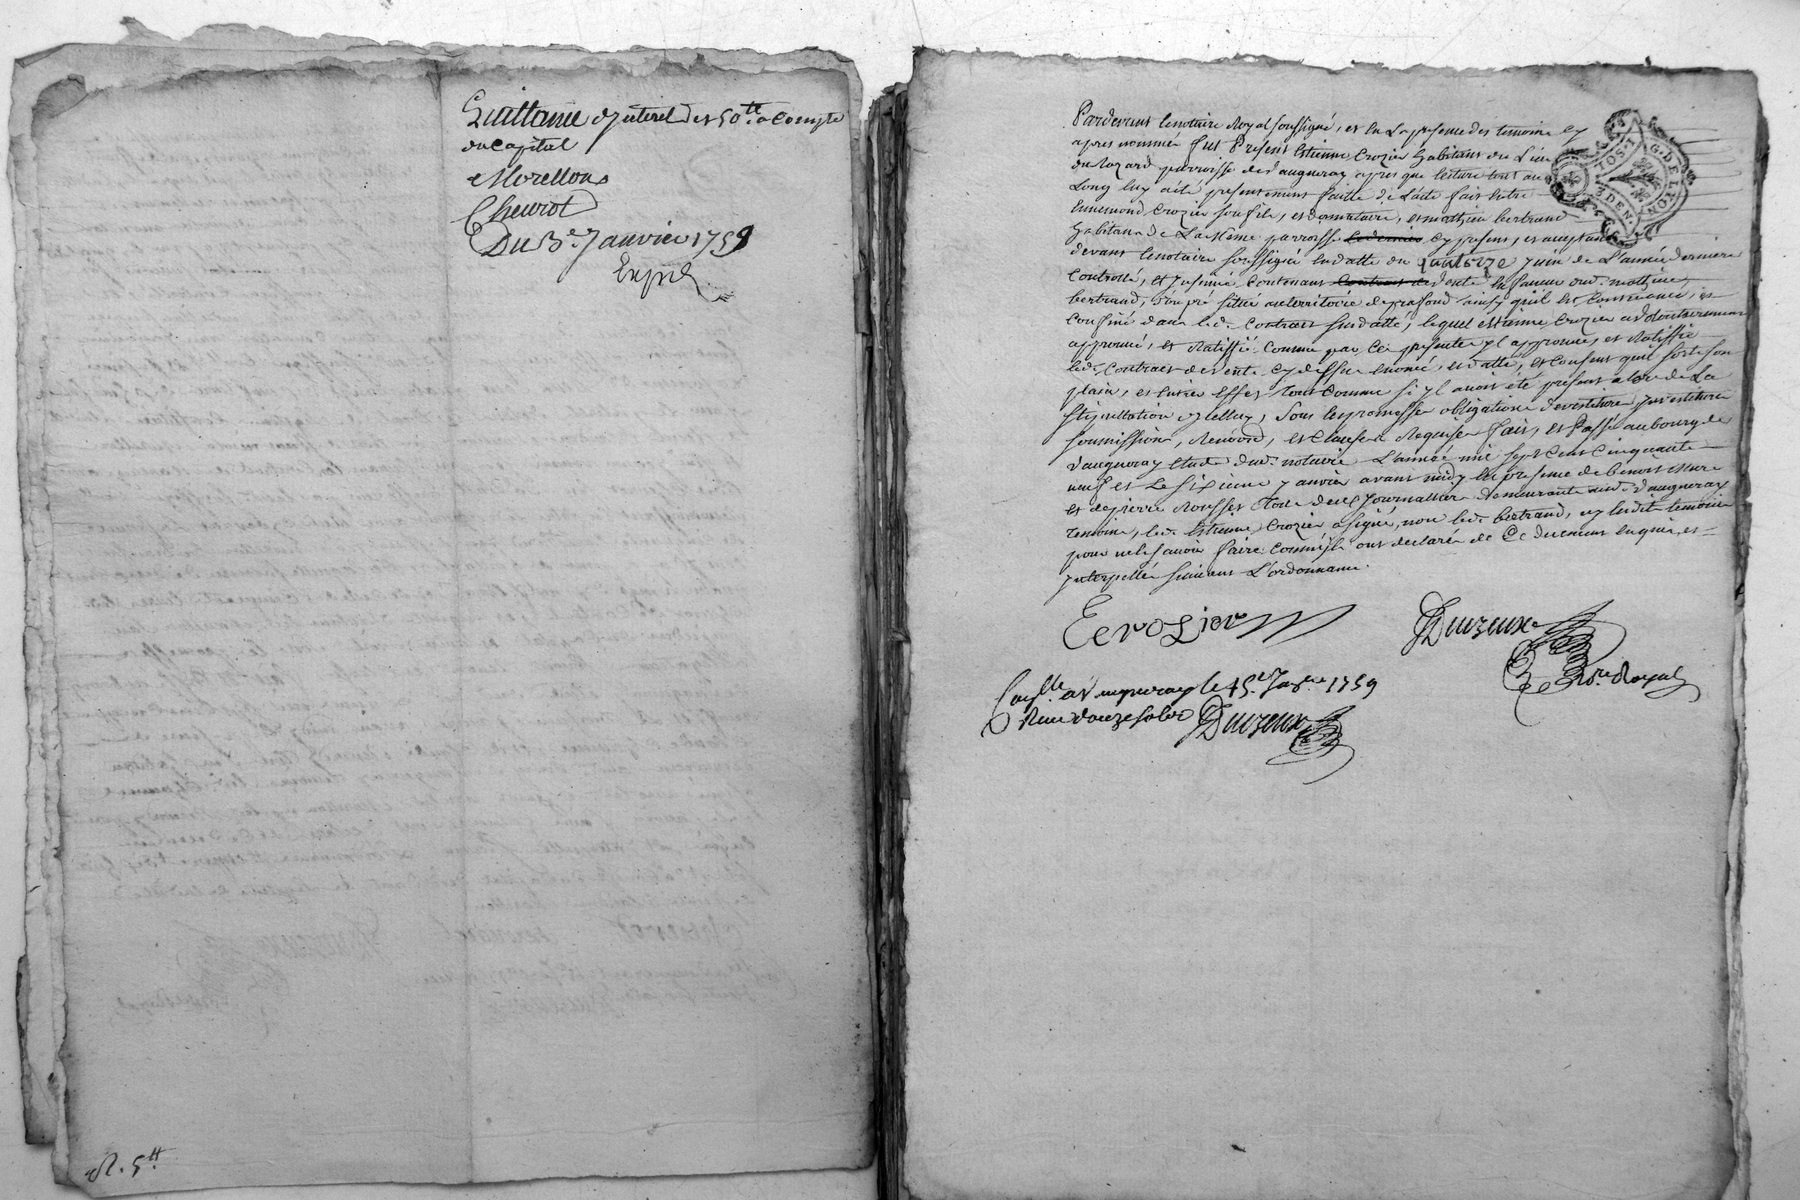 Quittance d'jnterest et 50tt a Compte
du Capital
Morellon
Cheurot
Du 3e Janvier 1759
Exped
R. 5tt
Pardevant le notaire Royal soussigné, et en La presence des temoins cy
apres nommés fut Present Estienne Crozier habitant du Lieu
du Rozard parroisse de vaugneray apres que lecture tout au
Long luy a été presentement faitte de L'acte fait entre
Ennemond Crozier son fils, et donnataire, et mathieu bertrand
habitans de La même parroisse cy present, et acceptant
devant le notaire soussigné en datte du quatorze Juin de L'année derniere
Controllé, et Insinué, Contenant vente en faveur dud. mathieu
bertrand, d'un pré situé au territoire de prafond ainsy qu'il est Contenancé, et
Confiné dans led. Contract susdatté, lequel estienne Crozier a volontairement
approuvé, et Ratiffié Comme par Ces presentes jl approuve, et Ratiffie
led. Contract de vente cy dessus enoncé, et datté, et Consent qu'il sorte son
plein, et entier Effet tout Comme si jl avoit été present a lors de La
stipullation d'jcelluy, Sous les promesses obligations devestiture jnvestiture
soumissions, Renvond, et Clauses Requises fait, et Passé au bourg de
vaugneray etude dud. notaire L'année mil sept Cent Cinquante
neuf et Le sixieme janvier avant midy en presence de benoit
et de pierre Rousset tous deux Journalliers demeurants aud. vaugneray
temoins, led. Estienne Crozier a signé, non led. bertrand, ny lesdits temoins
pour ne le savoir faire Comme jls ont declaré de Ce duement enquis, et
jnterpellés suivant L'ordonnance.
E crozier
Duizeux
Nre Royal
Conlle a Vaugneray le 15e Janer 1759
Reçu douze sols Duizeux
G. DE LYON
DEN.